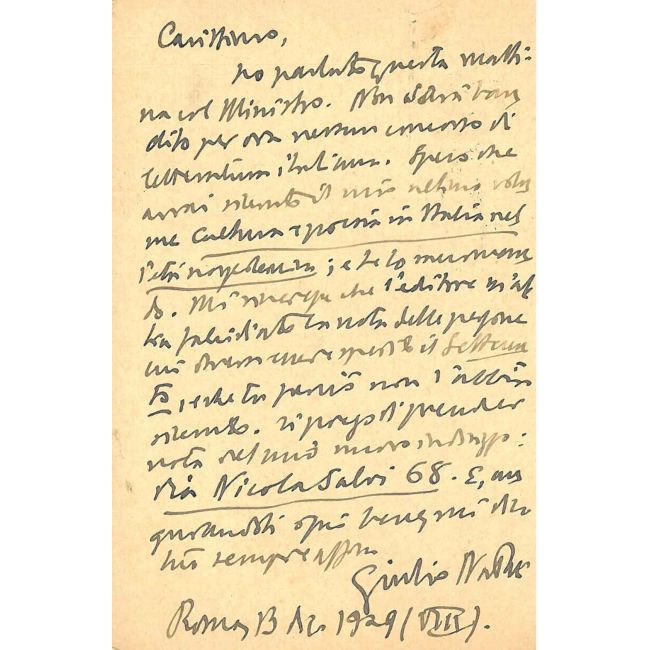 Carissimo,
ho parlato questa matti-
na col Ministro. Non sarà ban
dito per ora nessun concorso di
letteratura italiana. Spero che
avrai ricevuto il mio ultimo volu
me Cultura e poesia in Italia nel
l'età napoleonica; e te lo raccoman
do. Mi rincresce che l'editore m'ab
bia falcidiato la nota delle persone
cui doveva essere spedito il Settecen
to, e che tu perciò non l'abbia
ricevuto. Ti prego di prender
nota del mio nuovo indirizzo:
Via Nicola Salvi 68. E, au
gurandoti ogni bene, mi dico
tuo sempre aff.mo
Giulio Natali
Roma, 13 Dic. 1929 (VIII).